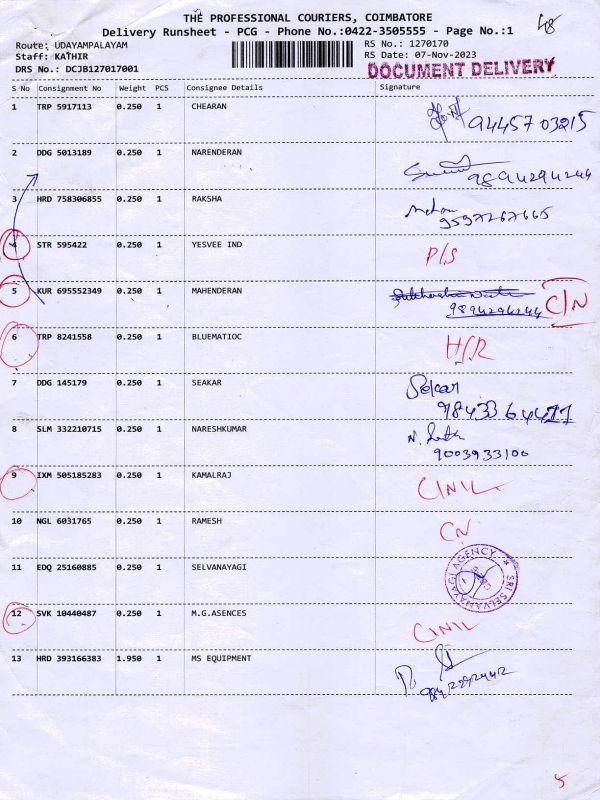 THE PROFESSIONAL COURIERS, COIMBATORE
Delivery Runsheet - PCG - Phone No.:0422-3505555 - Page No.:1
Route: UDAYAMPALAYAM
RS No.: 1270170
Staff: KATHIR
RS Date: 07-Nov-2023
DRS No.: DCJB127017001
DOCUMENT DELIVERY
S No Consignment No Weight PCS Consignee Details Signature
1 TRP 5917113 0.250 1 CHEARAN 9445703215
2 DDG 5013189 0.250 1 NARENDERAN 9894294244
3 HRD 758306855 0.250 1 RAKSHA 9597267665
4 STR 595422 0.250 1 YESVEE IND P/S
5 KUR 695552349 0.250 1 MAHENDERAN 9894294244 C/N
6 TRP 8241558 0.250 1 BLUEMATIOC H/R
7 DDG 145179 0.250 1 SEAKAR Sekar
9843364477
8 SLM 332210715 0.250 1 NARESHKUMAR
9003933100
9 IXM 505185283 0.250 1 KAMALRAJ C/N/L
10 NGL 6031765 0.250 1 RAMESH CN
11 EDQ 25160885 0.250 1 SELVANAYAGI SRI SELVANAYAGI AGENCY
12 SVK 10440487 0.250 1 M.G.ASENCES C/N/L
13 HRD 393166383 1.950 1 MS EQUIPMENT
5